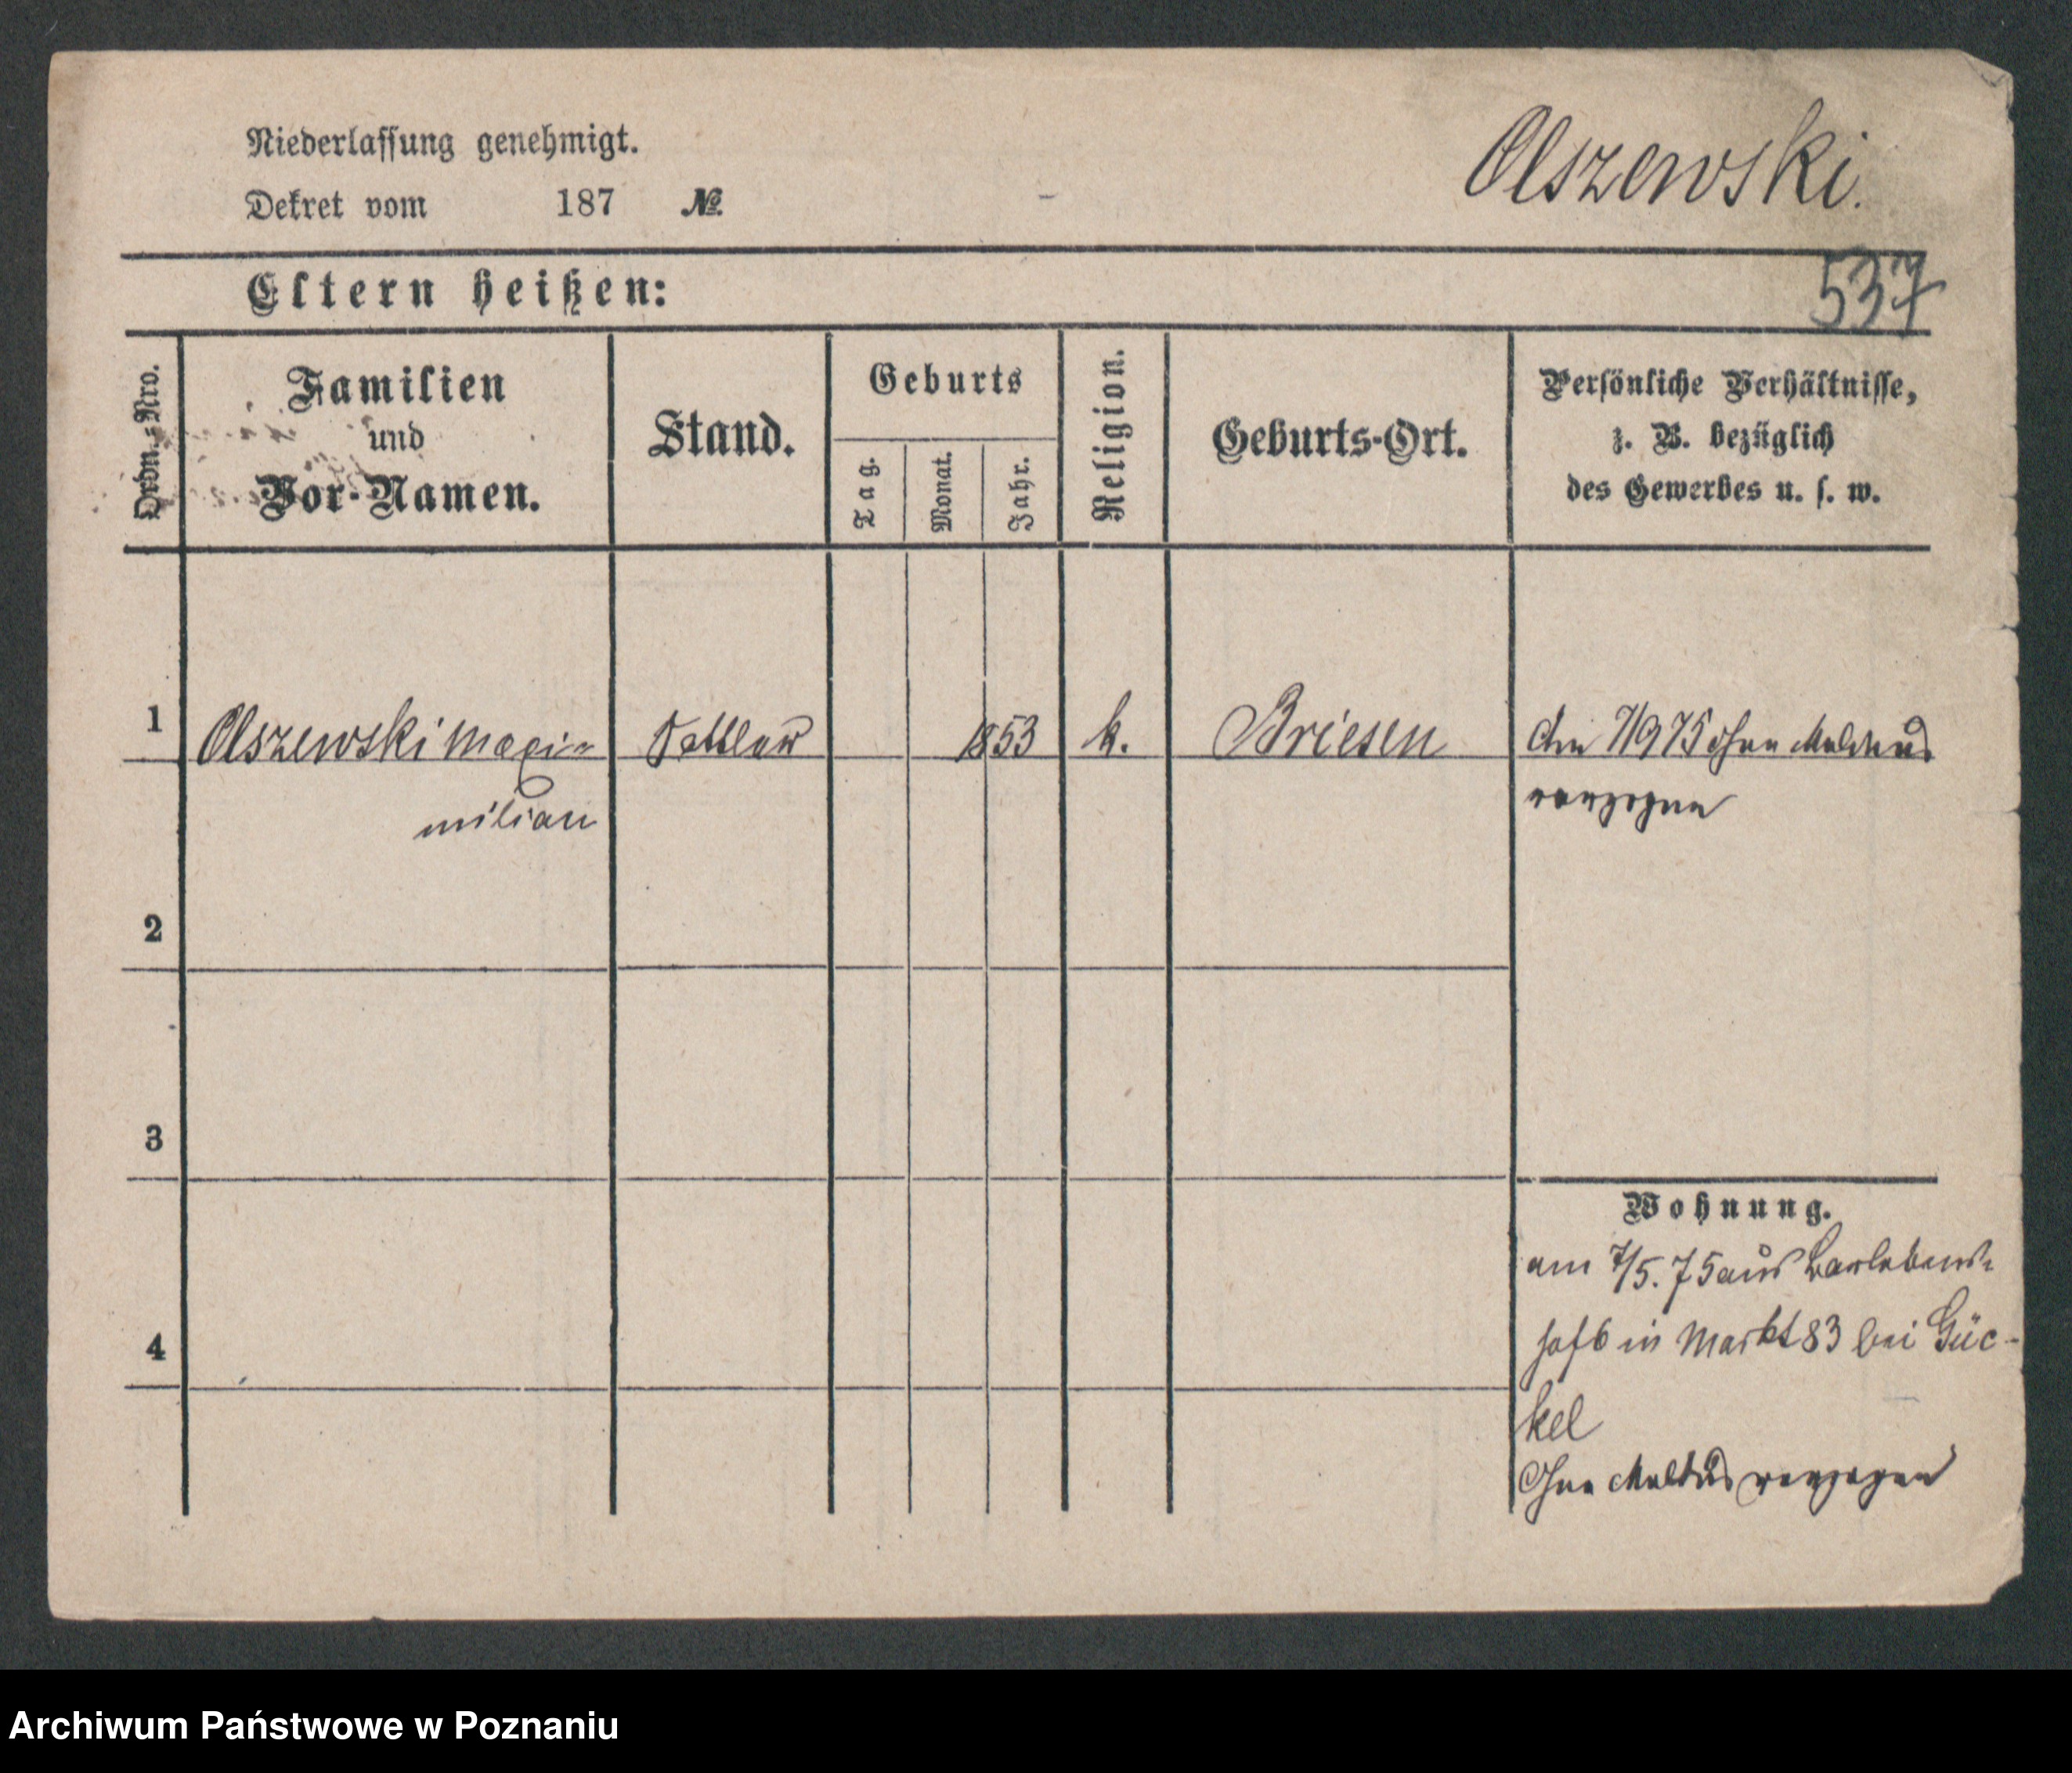 Niederlassung genehmigt.
Dekret vom 187 №
Olszewski.
Eltern heißen:
537
Ordn.-Nro.
Familien
und
Vor-Namen.
Stand.
Geburts
Tag.
Monat.
Jahr.
Religion.
Geburts-Ort.
Persönliche Verhältnisse,
z. B. bezüglich
des Gewerbes u. s. w.
1 Olszewski Maxi- Sattler 1853 k. Briesen 75 ohne
milian verzogen
2
3
Wohnung.
am 7/5. 75 aus Barlebens-
hof 6 in Markt 83 bei Güc-
4
kel
Ohne verzogen
Archiwum Państwowe w Poznaniu